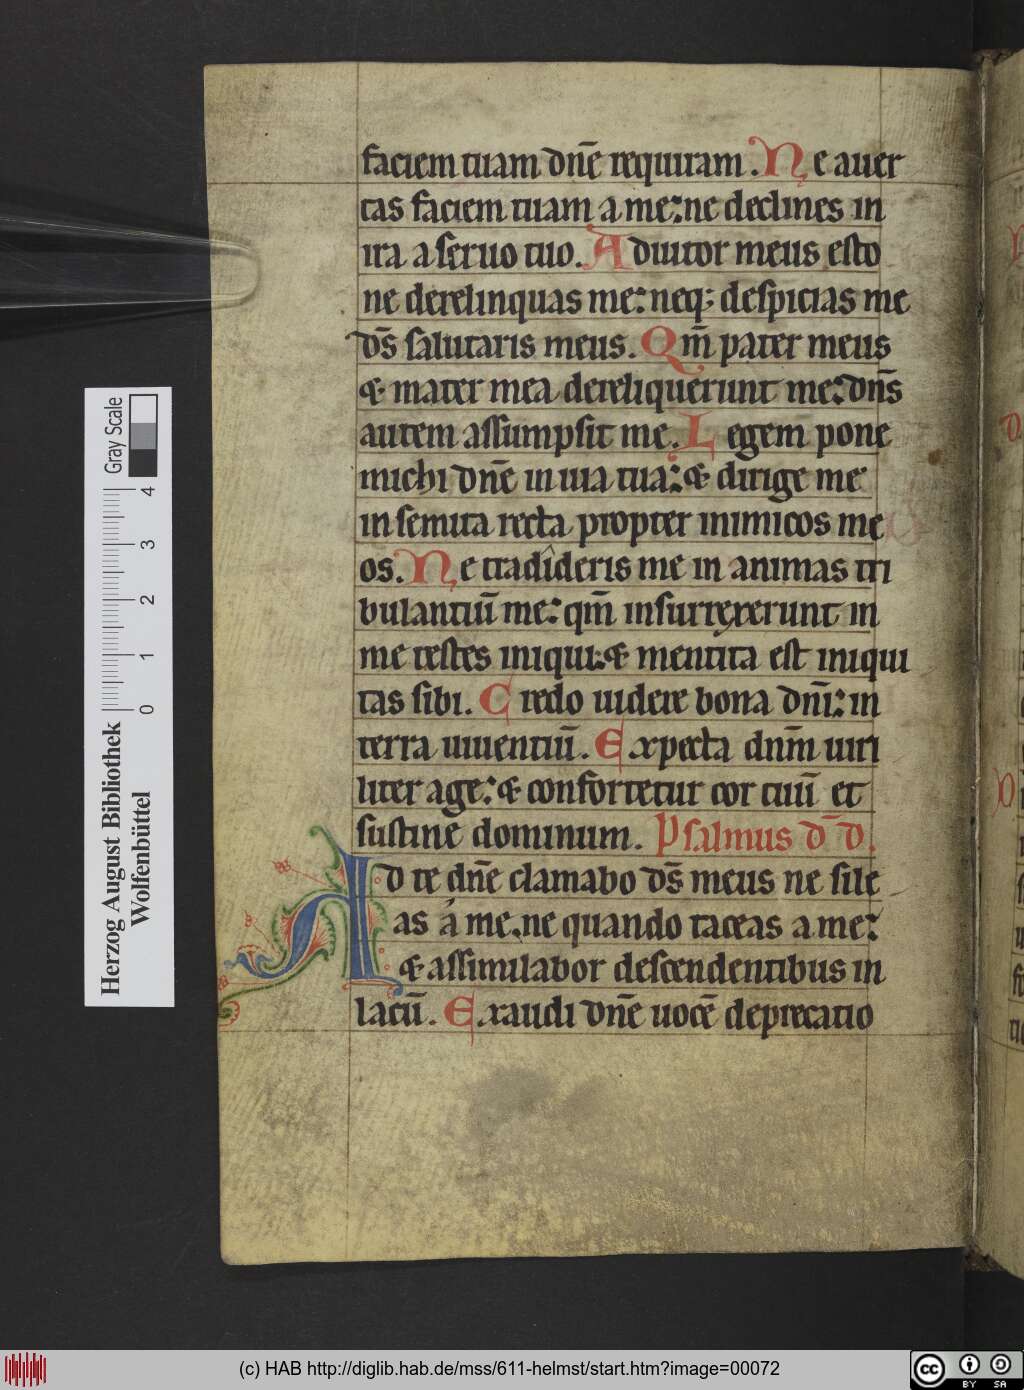 faciem tuam dn̄e requiram. Ne auer
tas faciem tuam a me: ne declines in
ira a seruo tuo. Adiutor meus esto
ne derelinquas me: neq; despicias me
ds̄ salutaris meus. Qm̄ pater meus
& mater mea dereliquerunt me: dn̄s
autem assumpsit me. Legem pone
michi dn̄e in uia tua: & dirige me
in semita recta propter inimicos me
os. Ne tradideris me in animas tri
bulantiū me: qm̄ insurrexerunt in
me testes iniqui: & mentita est iniqui
tas sibi. Credo uidere bona dn̄i: in
terra uiuentiū. Expecta dnm̄ uiri
liter age: & confortetur cor tuū et
sustine dominum. Psalmus d̄ d.
Ad te dn̄e clamabo ds̄ meus ne sile
as a me, ne quando taceas a me:
& assimilabor descendentibus in
lacū. Exaudi dn̄e uocē deprecatio
Herzog August Bibliothek
Wolfenbüttel
0 1 2 3 4
Gray Scale
(c) HAB http://diglib.hab.de/mss/611-helmst/start.htm?image=00072
cc BY SA